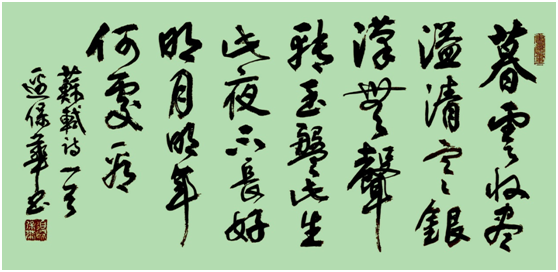 暮雲收尽
溢清寒銀
漢無聲
轉玉盤此生
此夜不長好
明月明年
何處看
蘇軾詩一首
邊保華书